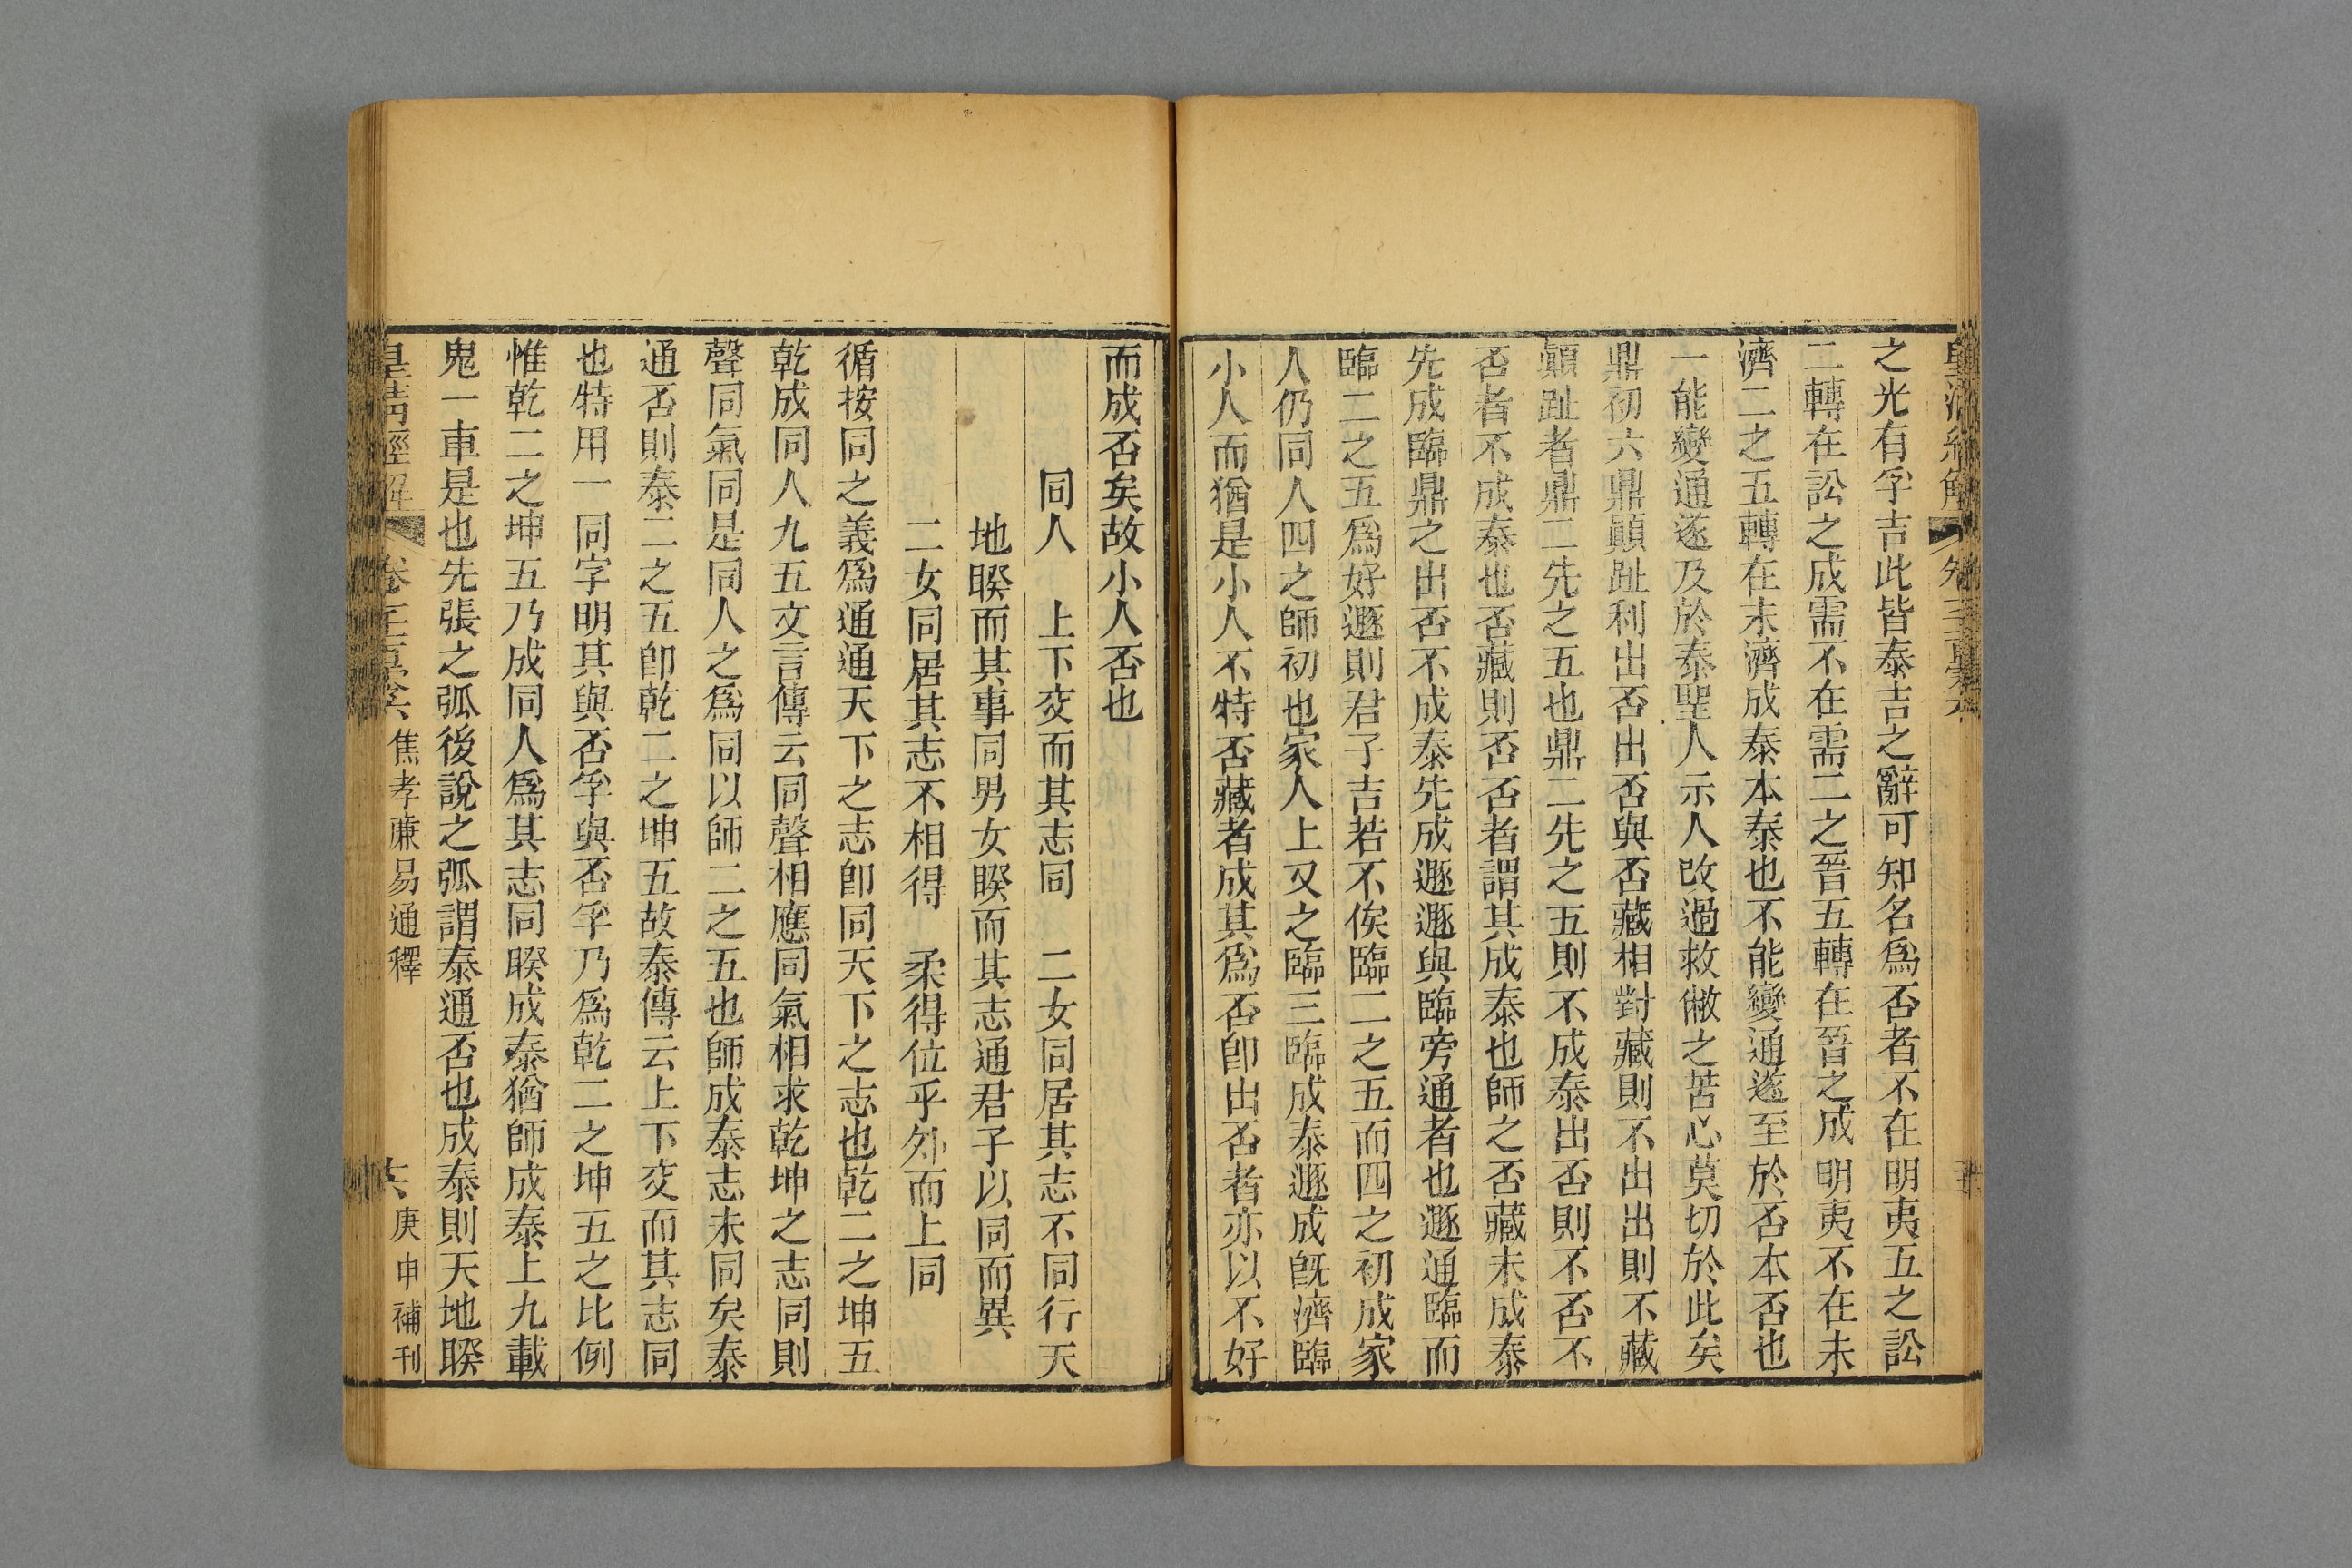 之光有孚吉此皆泰吉之辭可知名爲否者不在明夷五之訟
二轉在訟之成需不在需二之晉五轉在晉之成明夷不在未
濟二之五轉在未濟成泰本泰也不能變通遂至於否本否也
一能變通遂及於泰聖人示人改過救敝之苦心莫切於此矣
鼎初六鼎顚趾利出否出否與否藏相對藏則不出出則不藏
顚趾者鼎二先之五也鼎二先之五則不成泰出否則不否不
否者不成泰也否藏則否否者謂其成泰也師之否藏未成泰
先成臨鼎之出否不成泰先成遯遯與臨旁通者也遯通臨而
臨二之五爲好遯則君子吉若不俟臨二之五而四之初成家
人仍同人四之師初也家人上又之臨三臨成泰遯成旣濟臨
小人而猶是小人不特否藏者成其爲否卽出否者亦以不好
而成否矣故小人否也
同人 上下交而其志同 二女同居其志不同行天
地睽而其事同男女睽而其志通君子以同而異
二女同居其志不相得 柔得位乎外而上同
循按同之義爲通通天下之志卽同天下之志也乾二之坤五
乾成同人九五文言傳云同聲相應同氣相求乾坤之志同則
聲同氣同是同人之爲同以師二之五也師成泰志未同矣泰
通否則泰二之五卽乾二之坤五故泰傳云上下交而其志同
也特用一同字明其與否孚與否孚乃爲乾二之坤五之比例
惟乾二之坤五乃成同人爲其志同睽成泰猶師成泰上九載
鬼一車是也先張之弧後說之弧謂泰通否也成泰則天地睽
皇淸經解 焦孝廉易通釋 庚申補刊